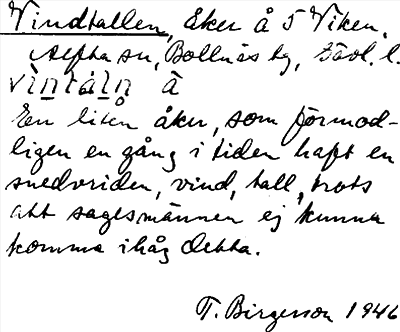 Vindtallen, åker å 5 Viken,
Alfta sn, Bollnäs tg, Gävl. l.
vìntáln å
En liten åker, som förmod-
ligen en gång i tiden haft en
snedvriden, vind, tall, trots
att sagesmännen ej kunna
komma ihåg detta.
T. Birgerson 1946